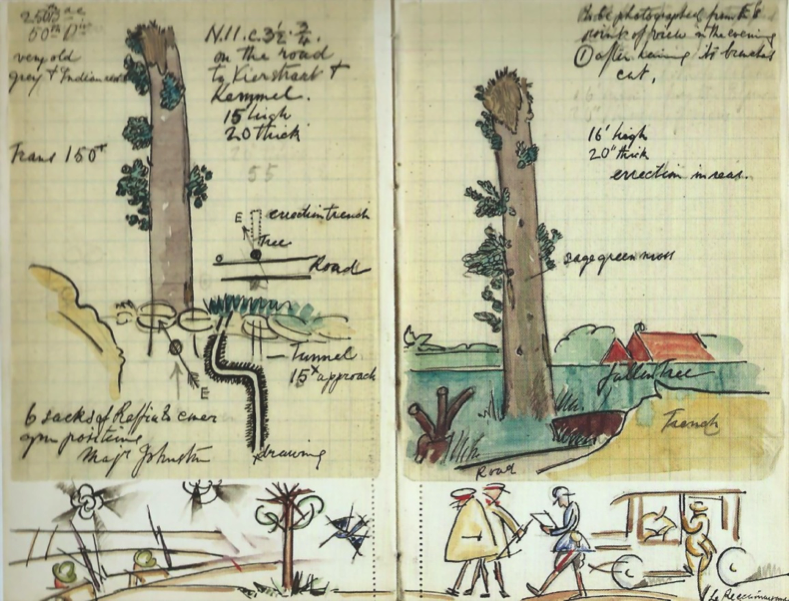 very old
N.11.c.3½.¾.
on the road
to Kierstraat &
Kemmel.
15 high
20 thick
Trans 150ˣ
55
E
erection trench
Tree
Road
Tunnel
15ˣ approach
E
6 sacks of Raffia to cover
gun positions
Majr Johnston
drawing
to be photographed from
point of view in the evening
① after having its branches
cut,
16' high
20" thick
erection in rear.
sage green moss
fallen Tree
Trench
Road